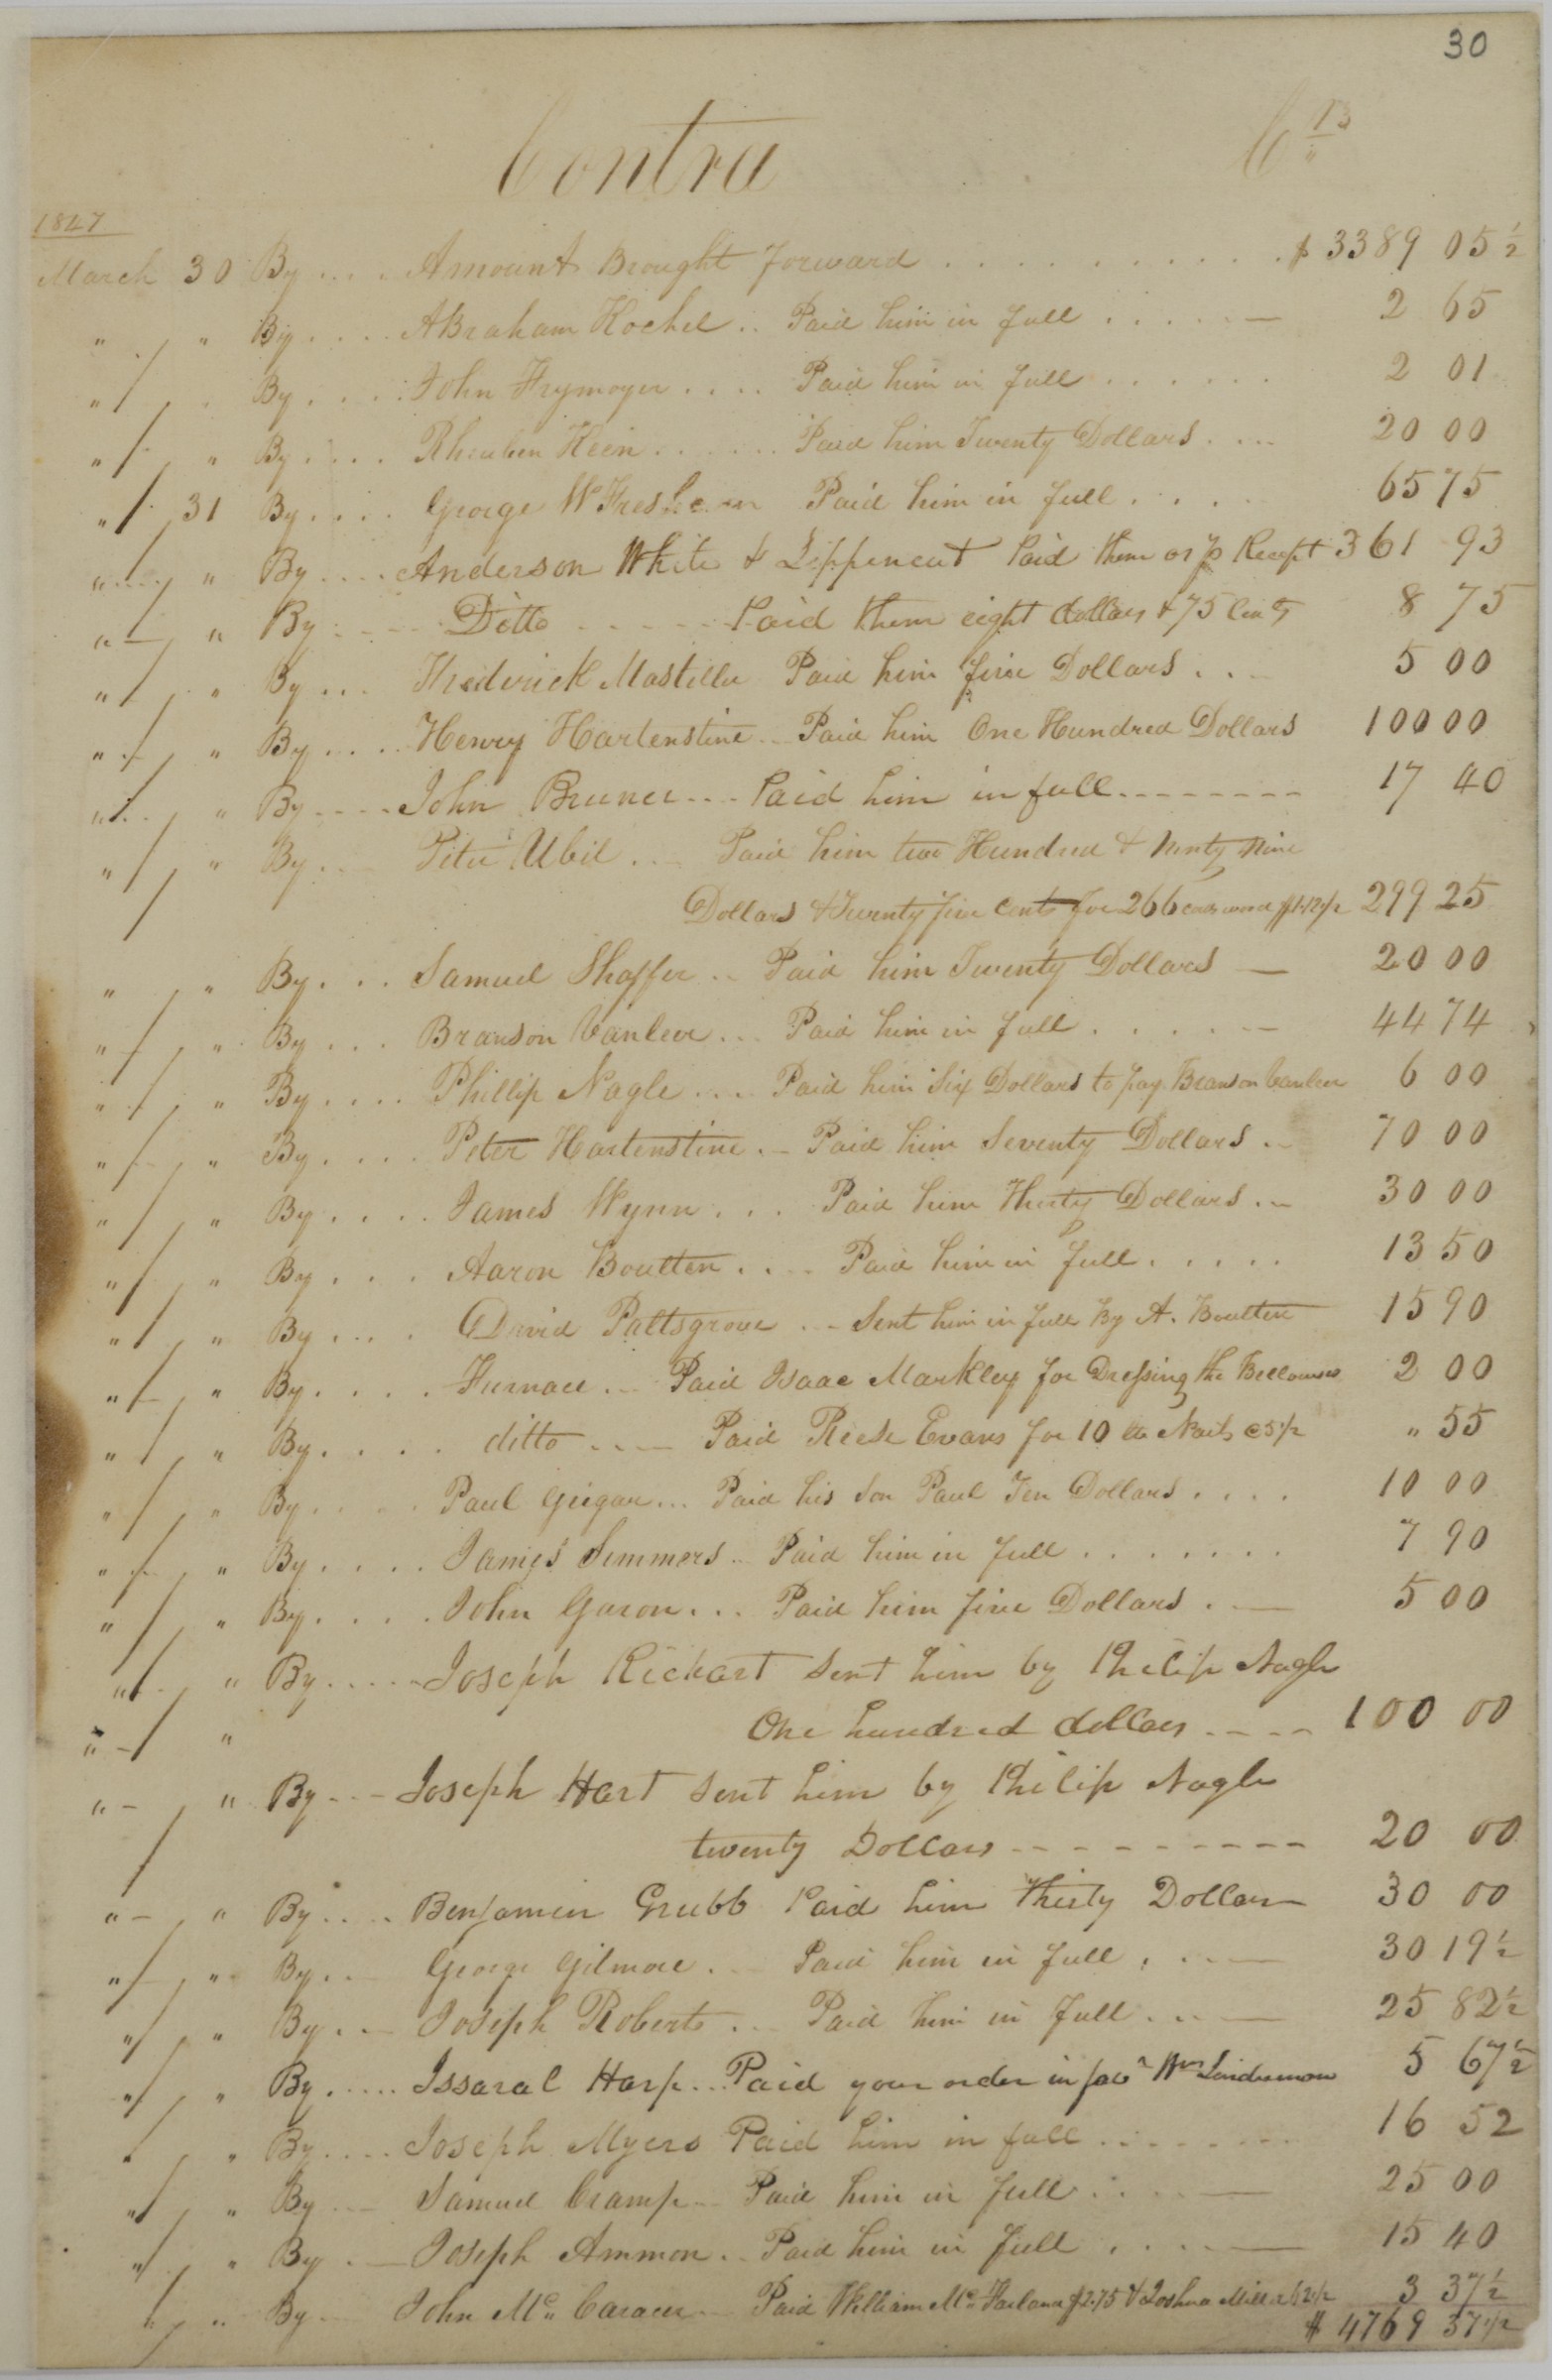 30
Contra Crs
1847
March 30 By .... Amount Brought Forward ........... $ 3389 05 1/2
" " By .... Abraham Kochel .. Paid him in full ..... — 2 65
" " By .... John Frymoyer .... Paid him in full ...... 2 01
" " By .... Rheuben Hein ...... Paid him Twenty Dollars .... 20 00
" 31 By .... George W Freshcorn Paid him in full .... 65 75
" " By .... Anderson White & Lippencut Paid them as p Recept 361 93
" " By .... Ditto ..... Paid them eight dollars & 75 Cents 8 75
" " By ... Frederick Mostiller Paid him five Dollars ... 5 00
" " By .... Henry Hartenstine .. Paid him One Hundred Dollars 100 00
" " By .... John Bruner .... Paid him in full ........ 17 40
" " By ... Peter Ubil ... Paid him two Hundred & Ninty Nine
Dollars & Twenty five Cents for 266 cords wood $1.12 1/2 299 25
" " By ... Samuel Shaffer .. Paid him Twenty Dollars — 20 00
" " By ... Branson Vanleer ... Paid him in full ...... 44 74
" " By .... Phillip Nagle .... Paid him Six Dollars to pay Branson Vanleer 6 00
" " By .... Peter Hartenstine .. Paid him Seventy Dollars .. 70 00
" " By .... James Wynn ... Paid him Thirty Dollars .. 30 00
" " By .... Aaron Boulten .... Paid him in full ..... 13 50
" " By .... David Paltsgrove ... Sent him in full By A. Boulten 15 90
" " By .... Furnace ... Paid Isaac Markley for Dressing the Bellowses 2 00
" " By .... ditto .... Paid Reese Evans for 10 lb Nails @ 5 1/2 " 55
" " By .... Paul Geigar ... Paid his Son Paul Ten Dollars .... 10 00
" " By .... James Simmers .. Paid him in full ....... 7 90
" " By .... John Garon ... Paid him five Dollars . — 5 00
" " By ..... Joseph Rickart Sent him by Philip Nagle
" " One hundred dollars .... 100 00
" " By ... Joseph Hart Sent him by Philip Nagle
twenty Dollars ......... 20 00
" " By .... Benjamin Grubb Paid him Thirty Dollars 30 00
" " By ... George Gilmore ... Paid him in full ... — 30 19 1/2
" " By ... Joseph Roberts ... Paid him in full ... — 25 82 1/2
" " By ..... Issaral Harp ... Paid your order in favr Wm Lindermon 5 67 1/2
" " By .... Joseph Myers Paid him in full ........ 16 52
" " By ... Samuel Cramp .. Paid him in full .... — 25 00
" " By ... Joseph Ammon .. Paid him in full .... — 15 40
" " By ... John Mc Caraer ... Paid William Mc Farland $2.75 & Joshua Millar 62 1/2 3 37 1/2
$ 4769 37 1/2